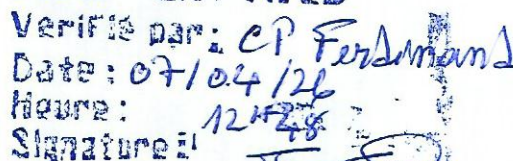 Verifié par: CP Ferdinand
Date: 07/04/26
Heure: 12H48
Signature: